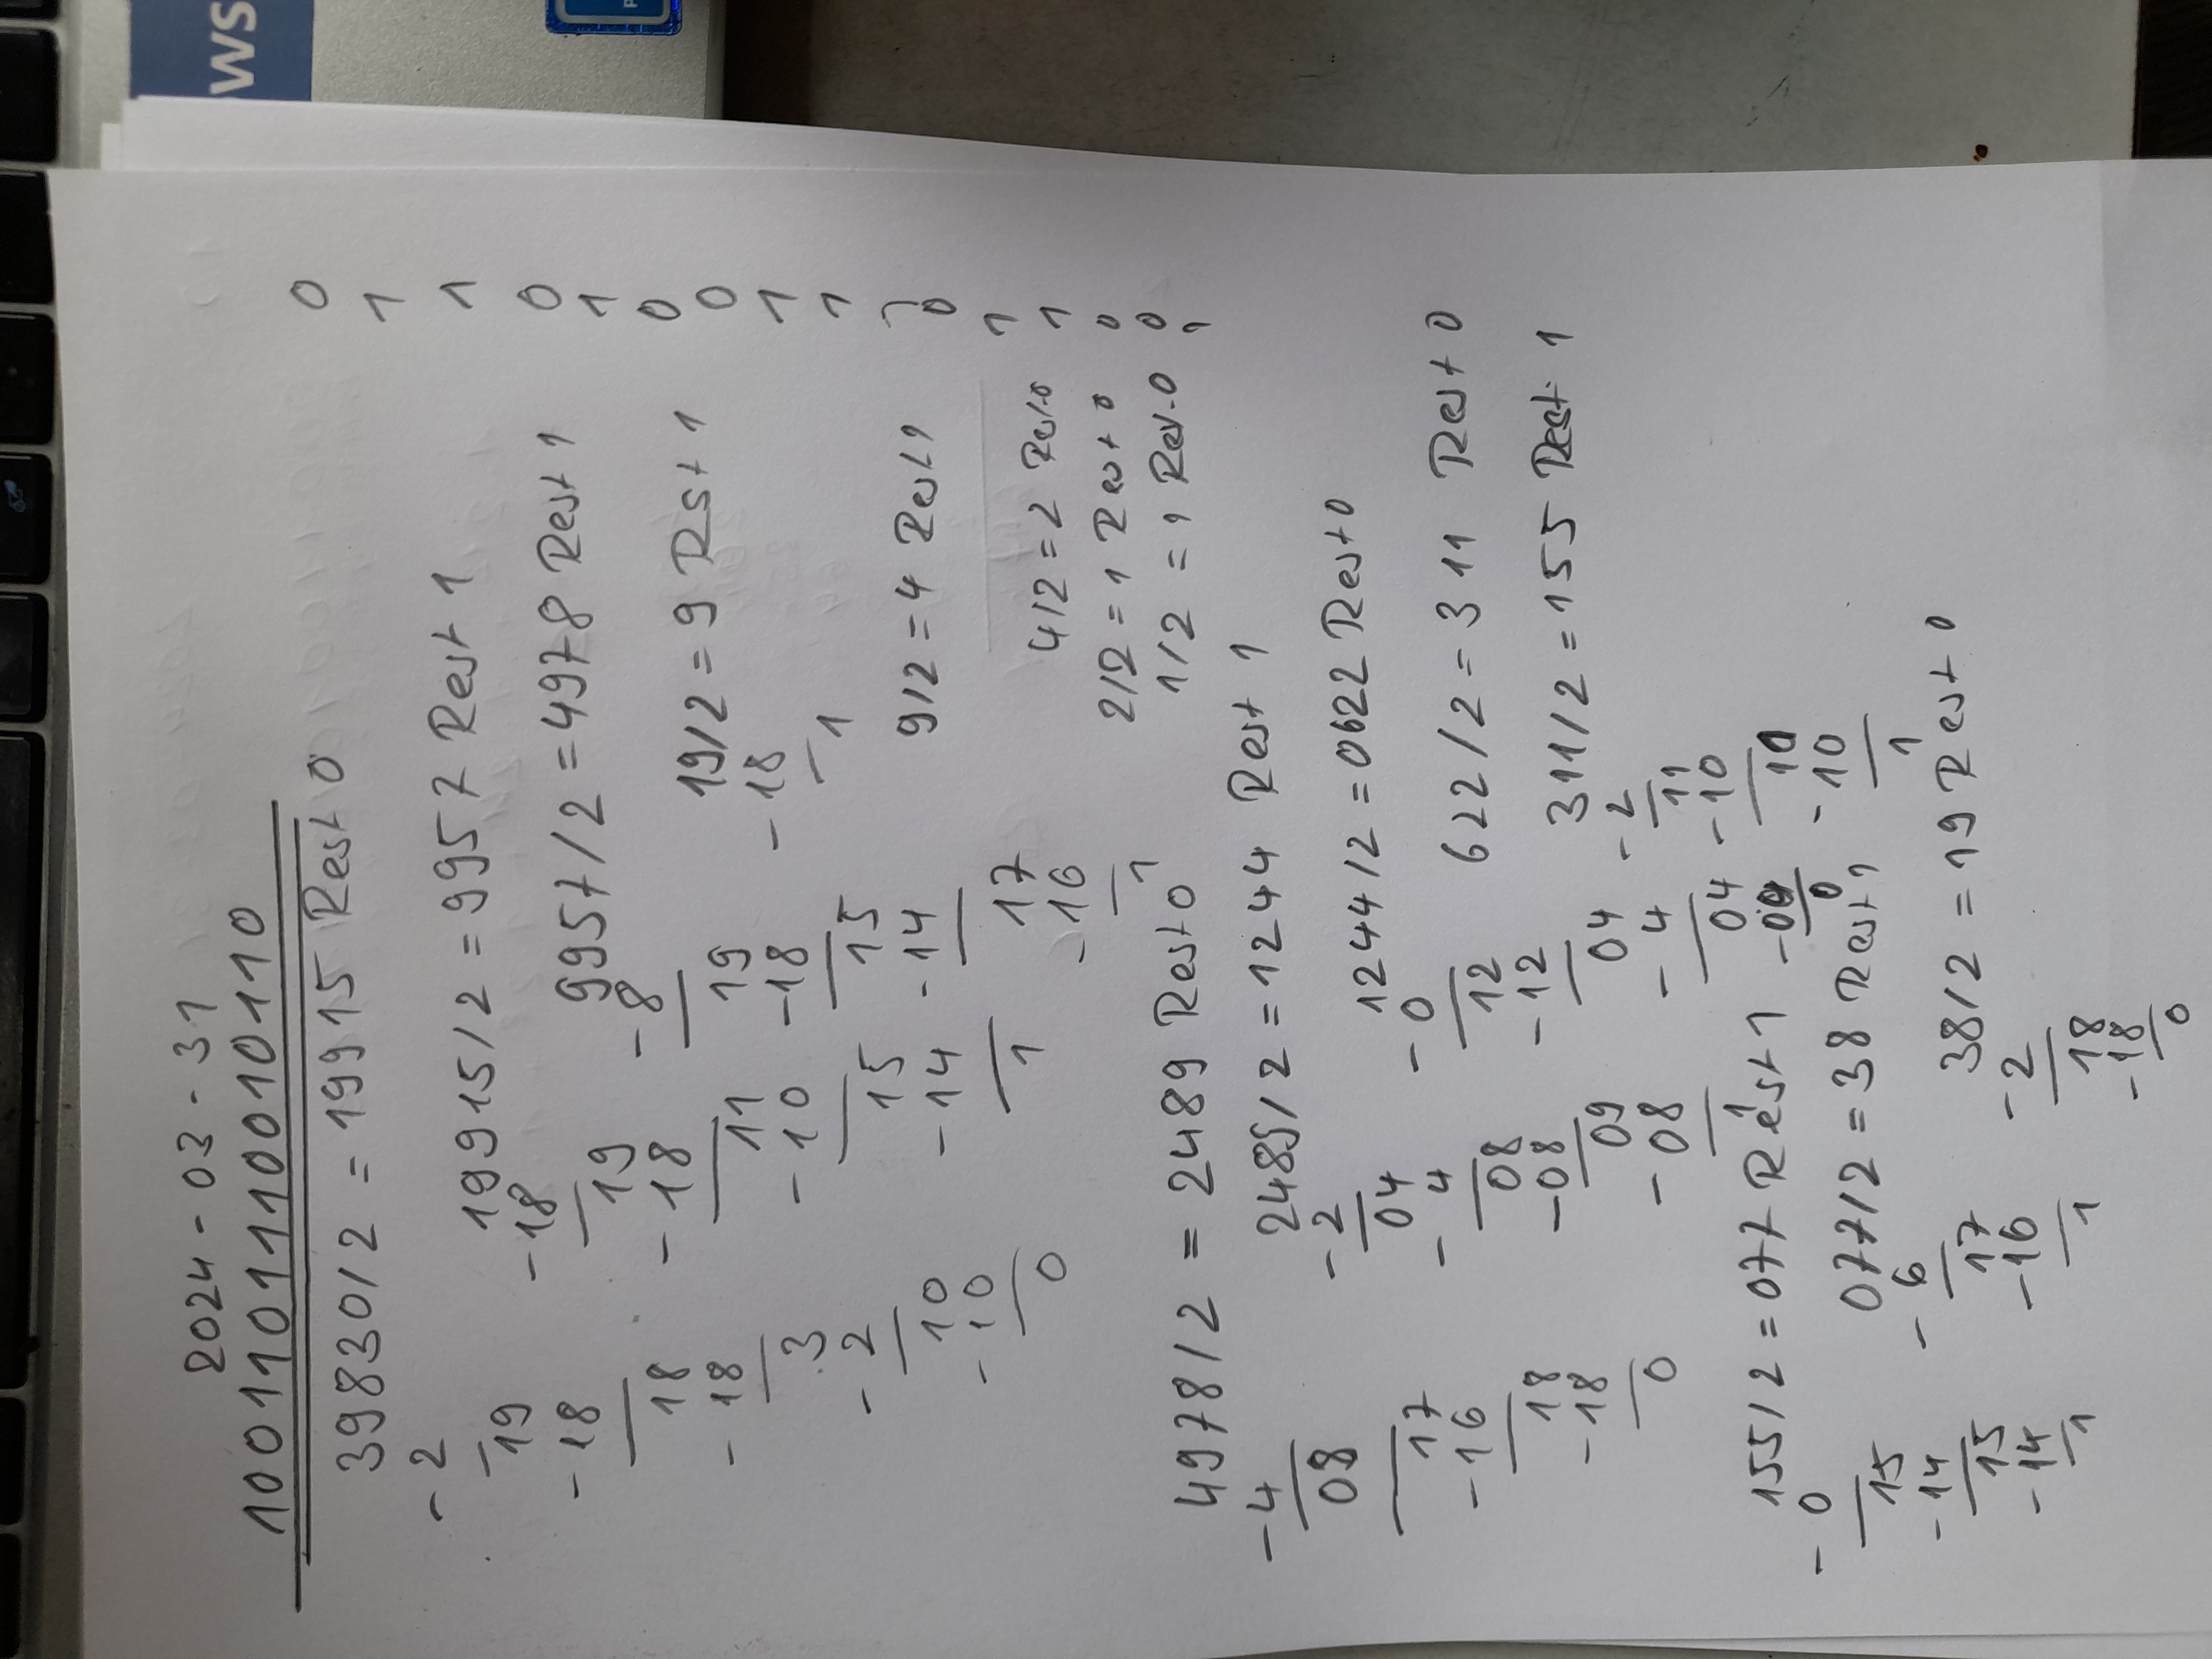 2024-03-31
1001101110010110
39830/2 = 19915 Rest 0
-2
19
-18
18
-18
3
-2
10
-10
0
19915/2 = 9957 Rest 1
-18
19
-18
11
-10
15
-14
1
9957/2 = 4978 Rest 1
-8
19
-18
15
-14
17
-16
1
19/2 = 9 Rst 1
-18
1
9/2 = 4 Rest 1
4/2 = 2 Rest 0
2/2 = 1 Rest 0
1/2 = 1 Rest 0
0
1
1
0
1
0
0
1
1
0
1
1
0
0
1
4978/2 = 2489 Rest 0
-4
08
17
-16
18
-18
0
2489/2 = 1244 Rest 1
-2
04
-4
08
-08
09
-08
1
1244/2 = 0622 Rest 0
-0
12
-12
04
-4
04
-04
0
622/2 = 311 Rest 0
311/2 = 155 Rest 1
-2
11
-10
10
-10
1
155/2 = 077 Rest 1
-0
15
-14
15
-14
1
077/2 = 38 Rest 1
-6
17
-16
1
38/2 = 19 Rest 0
-2
18
-18
0
WS